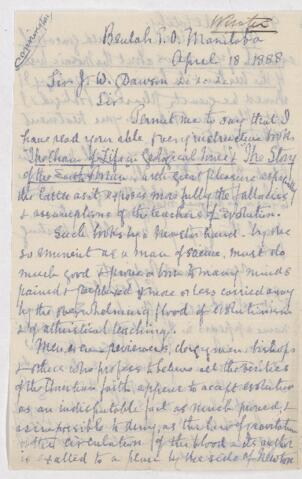 Beulah P.O. Manitoba
April 18 1888
Sir J. W. Dawson
Sir
Permit me to say that I
have read your able & very instructive books
The Chain of Life in Geological Time & The Story
of the Earth & Man with great pleasure especially
the latter as it exposes more fully the fallacies
& assumptions of the teachers of evolution.
Such books by a master hand by one
so eminent as a man of science, must do
much good & prove a boon to many minds
pained & perplexed & more or less carried away
by the overwhelming flood of evolutionism
& of atheistical teaching.
Men even reviewers, clergymen, bishops
& others who profess to believe all the verities
of the Christian faith, appear to accept evolution
as an indisputable fact as much proved, &
as impossible to deny, as the law of gravitation
or the circulation of the blood & its author
is exalted to a place by the side of Newton